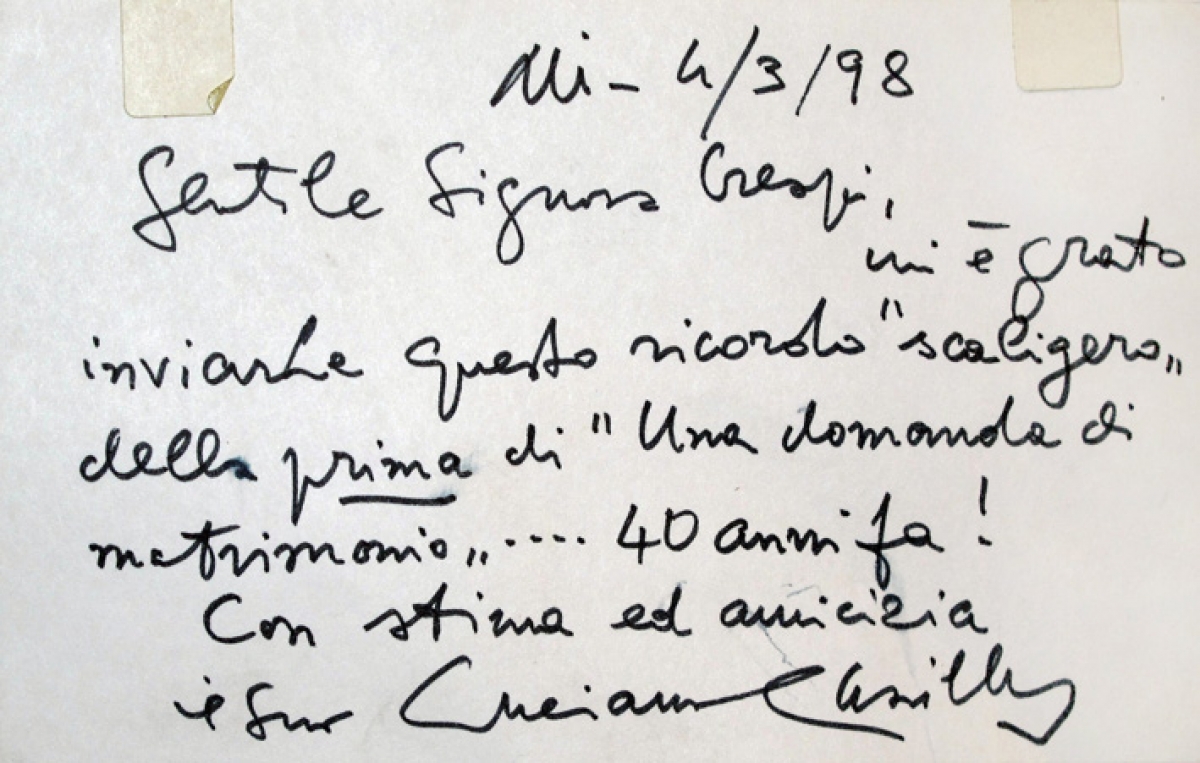 Mi - 4/3/98
Gentile Signora Crespi,
mi è grato
inviarle questo ricordo "scaligero„
della prima di "Una domanda di
matrimonio„ .... 40 anni fa!
Con stima ed amicizia
il suo Luciano Chailly